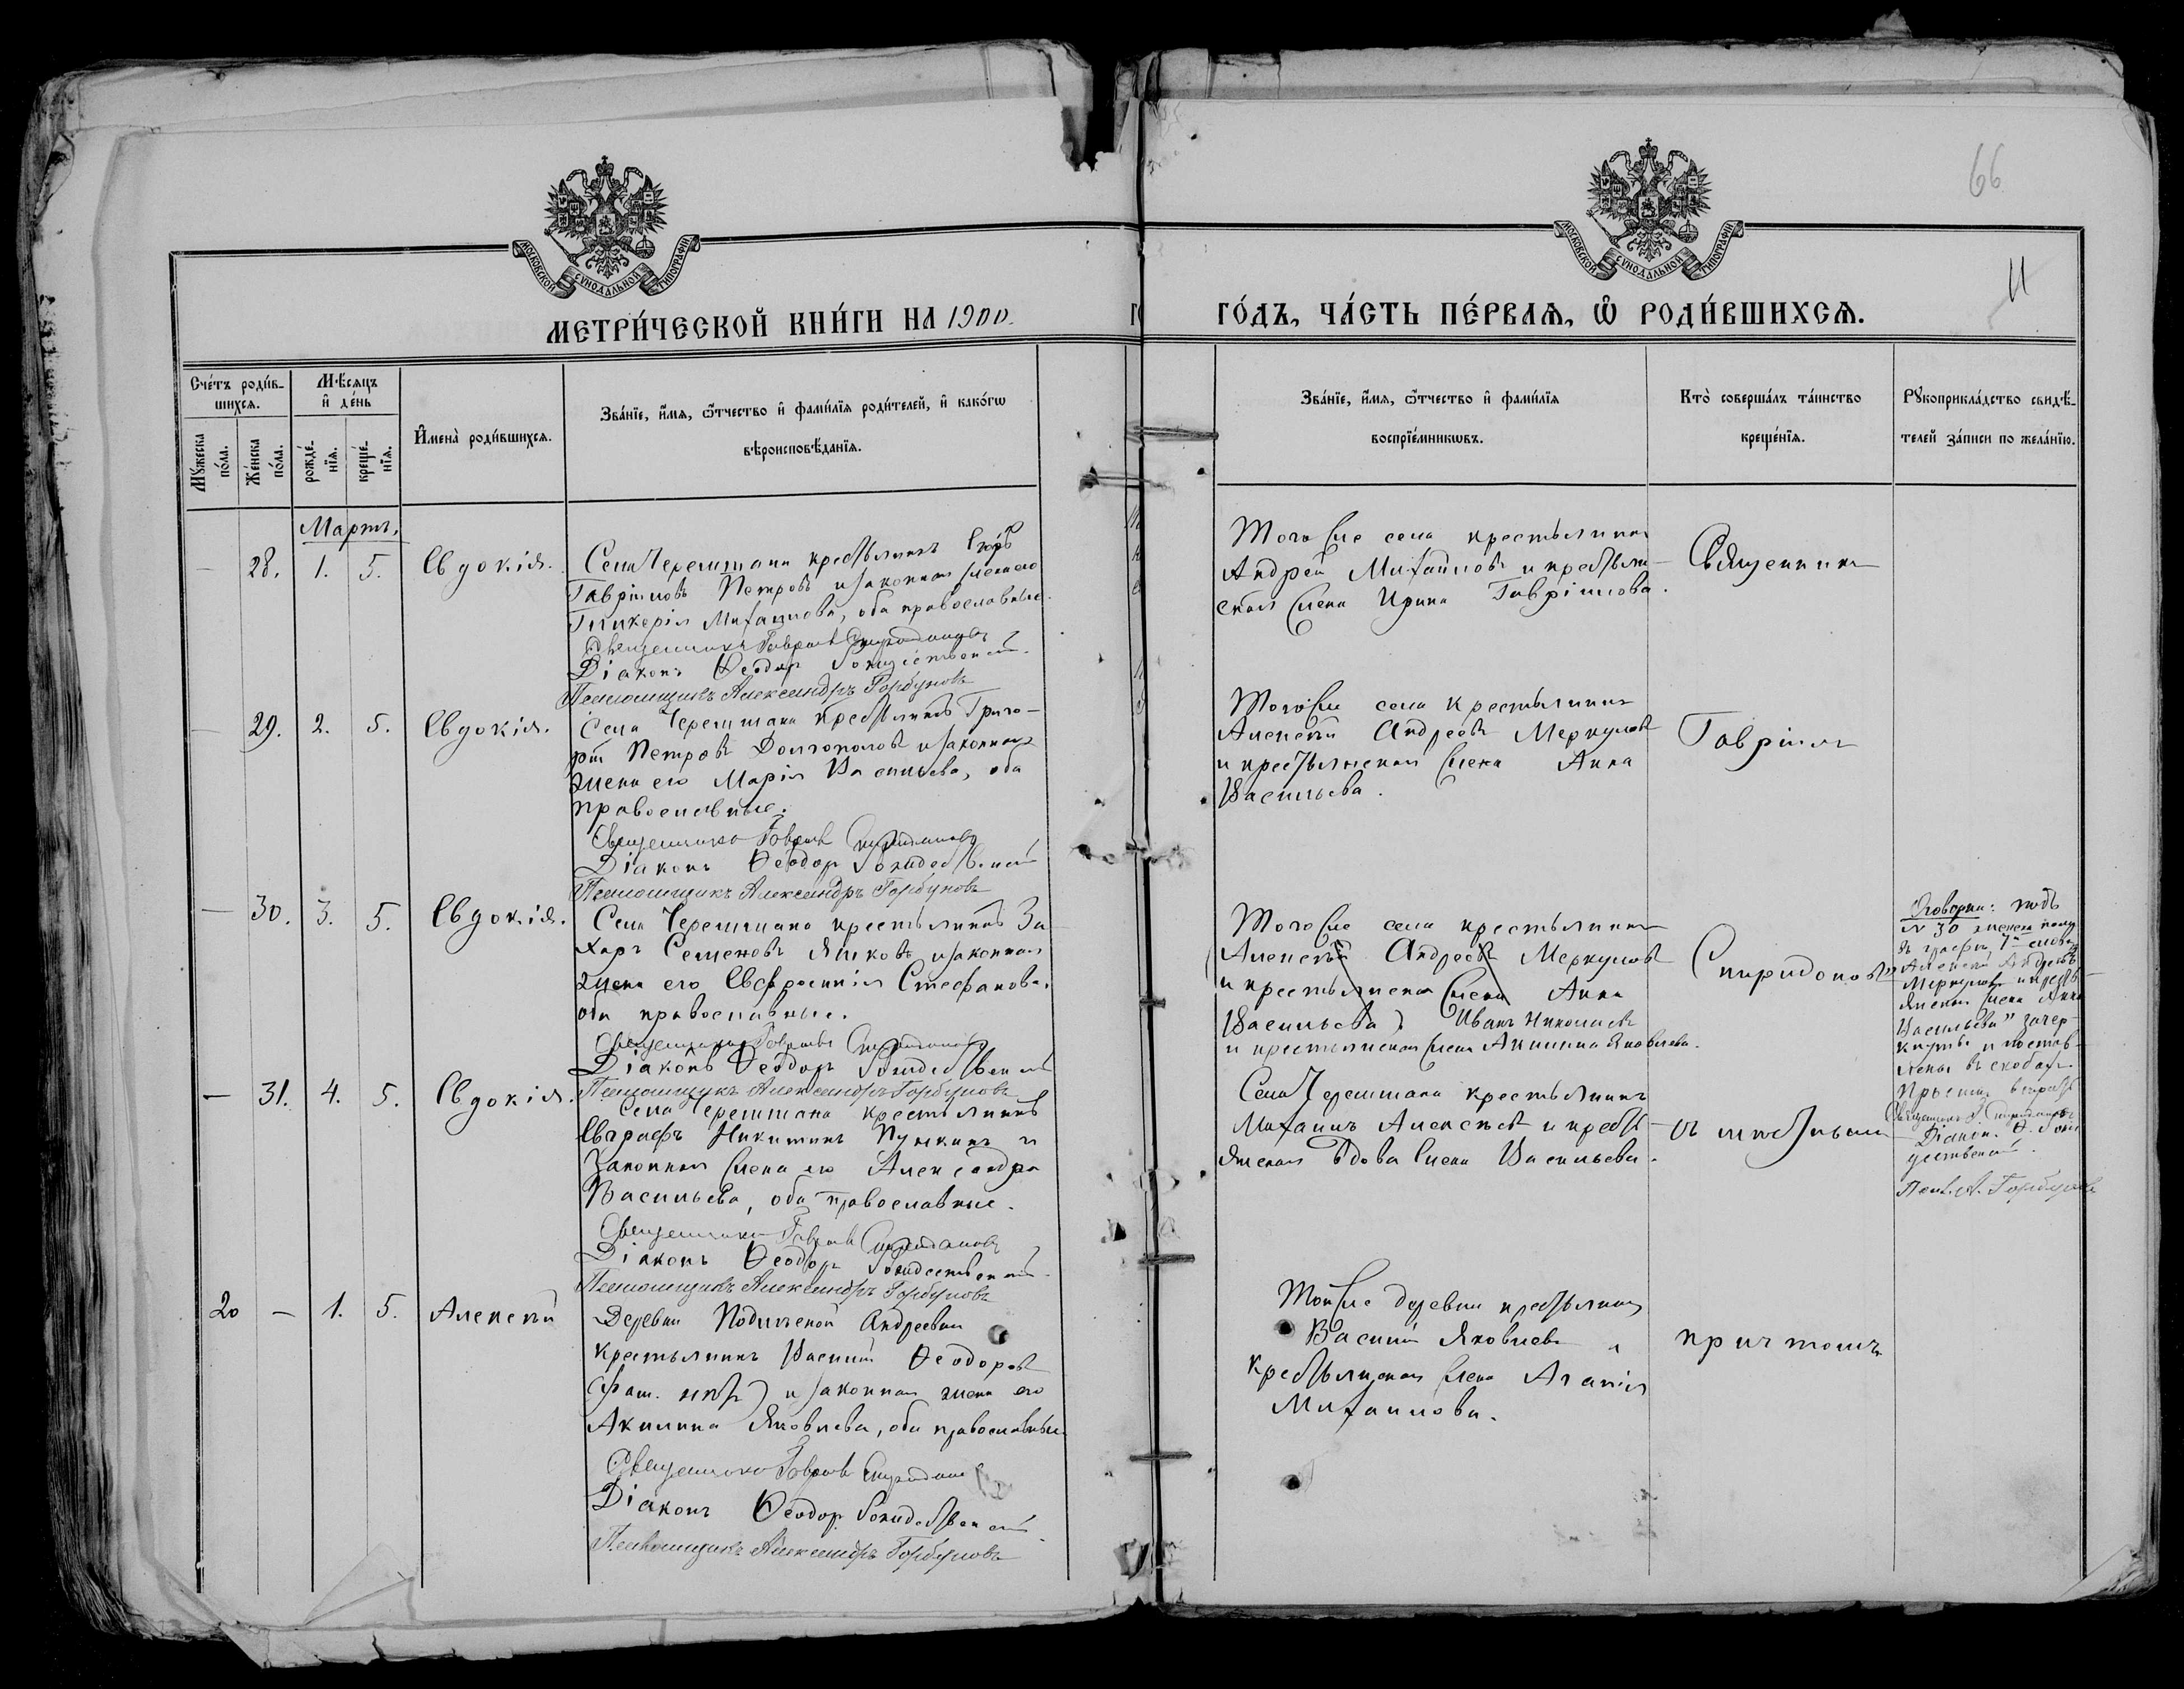 66
11
МОСКОВСКОЙ СУНОДАЛЬНОЙ ТИПОГРАФІИ
МОСКОВСКОЙ СУНОДАЛЬНОЙ ТИПОГРАФІИ
МЕТРИ́ЧЕСКОЙ КНИ́ГИ НА 1900.
ГО́ДЪ, ЧА́СТЬ ПЕ́РВАѦ, Ѡ҆ РОДИ́ВШИХСѦ.
Сче́тъ роди́в-
шихсѧ.
Мꙋ́жеска
по́ла.
Же́нска
по́ла.
Мѣ́сѧцъ
и҆ де́нь
рожде́-
нїѧ.
креще́-
нїѧ.
И҆мена̀ роди́вшихсѧ.
Зва́нїе, и҆́мѧ, ѻ҆́тчество и҆ фами́лїѧ роди́телей, и҆ како́гѡ
вѣроисповѣ́данїѧ.
Зва́нїе, и҆́мѧ, ѻ҆́тчество и҆ фами́лїѧ
воспрїе́мникѡвъ.
Кто̀ соверша́лъ та́инство
креще́нїѧ.
Рꙋкоприкла́дство свидѣ́-
телей за́писи по жела́нїю.
Мартъ.
— 28. 1. 5. Евдокія.
Села Черемшана крестьянинъ
Гавріиловъ Петровъ и законная жена его
Гликерія Михаилова, оба православные.
Священникъ Гавріилъ Спиридоновъ
Діаконъ Ѳеодоръ Рождественскій
Псаломщикъ Александръ Горбуновъ
Того же села крестьянинъ
Андрей Михаиловъ и крестьян-
ская жена Ирина Гавріилова.
Священникъ
— 29. 2. 5. Евдокія.
Села Черемшана крестьянинъ Григо-
рій Петровъ Долгополовъ и законная
жена его Марія Васильева, оба
православные.
Священникъ Гавріилъ Спиридоновъ
Діаконъ Ѳеодоръ Рождественскій
Псаломщикъ Александръ Горбуновъ
Того же села крестьянинъ
Алексѣй Андреевъ Меркуловъ
и крестьянская жена Анна
Васильева.
Гавріилъ
— 30. 3. 5. Евдокія.
Села Черемшана крестьянинъ За-
харъ Семеновъ Яшковъ и законная
жена его Евфросинія Стефанова,
оба православные.
Священникъ Гавріилъ Спиридоновъ
Діаконъ Ѳеодоръ Рождественскій
Псаломщикъ Александръ Горбуновъ
Того же села крестьянинъ
(Алексѣй Андреевъ Меркуловъ
и крестьянская жена Анна
Васильева) Иванъ Николаевъ
и крестьянская жена Акилина Яковлева.
Спиридоновъ
Оговорка: подъ
№ 30
въ графѣ слова
"Алексѣй Андреевъ
Меркуловъ и крестья-
янская жена Анна
Васильева" зачер-
кнуты и постав-
лены въ скобах.
Священникъ Г. Спиридоновъ
Діакон. Ѳ. Рож-
дественскій.
Псал. А. Горбуновъ
— 31. 4. 5. Евдокія.
Села Черемшана крестьянинъ
Евграфъ Никитинъ Пушкинъ и
законная жена его Александра
Васильева, оба православные.
Священникъ Гавріилъ Спиридоновъ
Діаконъ Ѳеодоръ Рождественскій
Псаломщикъ Александръ Горбуновъ
Села Черемшана крестьянинъ
Михаилъ Алексѣевъ и кресть-
янская вдова Васильева.
съ мѣстнымъ
20 — 1. 5. Алексѣй
Деревни Подлѣсной Андреевки
крестьянинъ Василій Ѳеодоровъ
(фам. нѣтъ) и законная жена его
Акилина Яковлева, оба православные
Священникъ Гавріилъ Спиридоновъ
Діаконъ Ѳеодоръ Рождественскій
Псаломщикъ Александръ Горбуновъ
Той же деревни крестьянинъ
Василій Яковлевъ и
крестьянская жена Агапія
Михаилова.
причтомъ